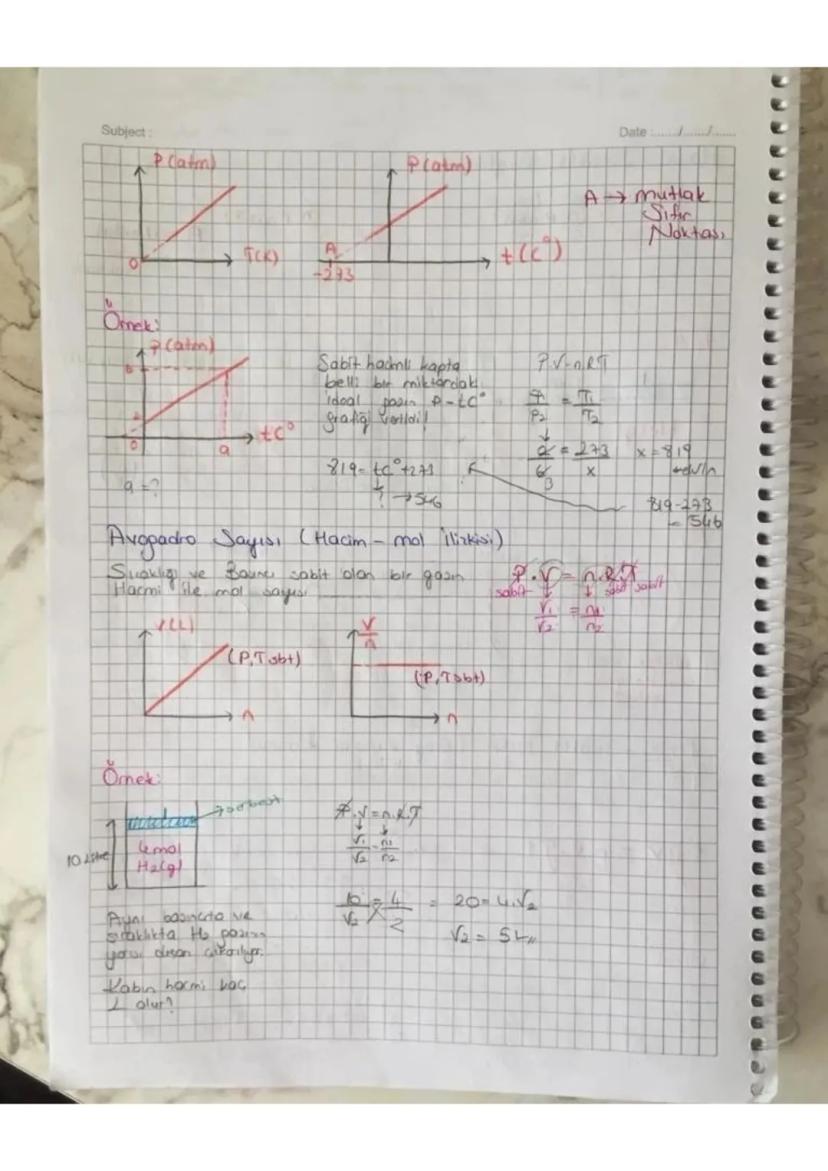 Subject :
Date : ....../....../......
P(atm)
T(K)
0
P(atm)
A
-273
t(C°)
A → Mutlak
Sıfır
Noktası
Örnek:
P(atm)
6
2
0
a
tC°
a = ?
Sabit hacimli kapta
belli bir miktardaki
ideal gazın P-tC°
grafiği verildi!
819 = tC°+273
? → 546
P.V=n.R.T
P1/P2 = T1/T2
2/6 = 273/x x = 819
3
819-273
= 546
Avogadro Sayısı (Hacim - mol ilişkisi)
Sıcaklığı ve Basıncı sabit olan bir gazın
Hacmi ile mol sayısı
P.V = n.R.T
sabit sabit sabit
V1/V2 = n1/n2
V(L)
(P,T sbt)
n
V/n
(P,T sbt)
n
Örnek:
→ serbest
10 Litre
4 mol
H2(g)
P.V = n.R.T
V1/V2 = n1/n2
10/V2 = 4/2 = 20 = 4.V2
V2 = 5L,,
Aynı basınçta ve
sıcaklıkta H2 gazının
yarısı dışarı çıkarılıyor.
Kabın hacmi kaç
L olur?